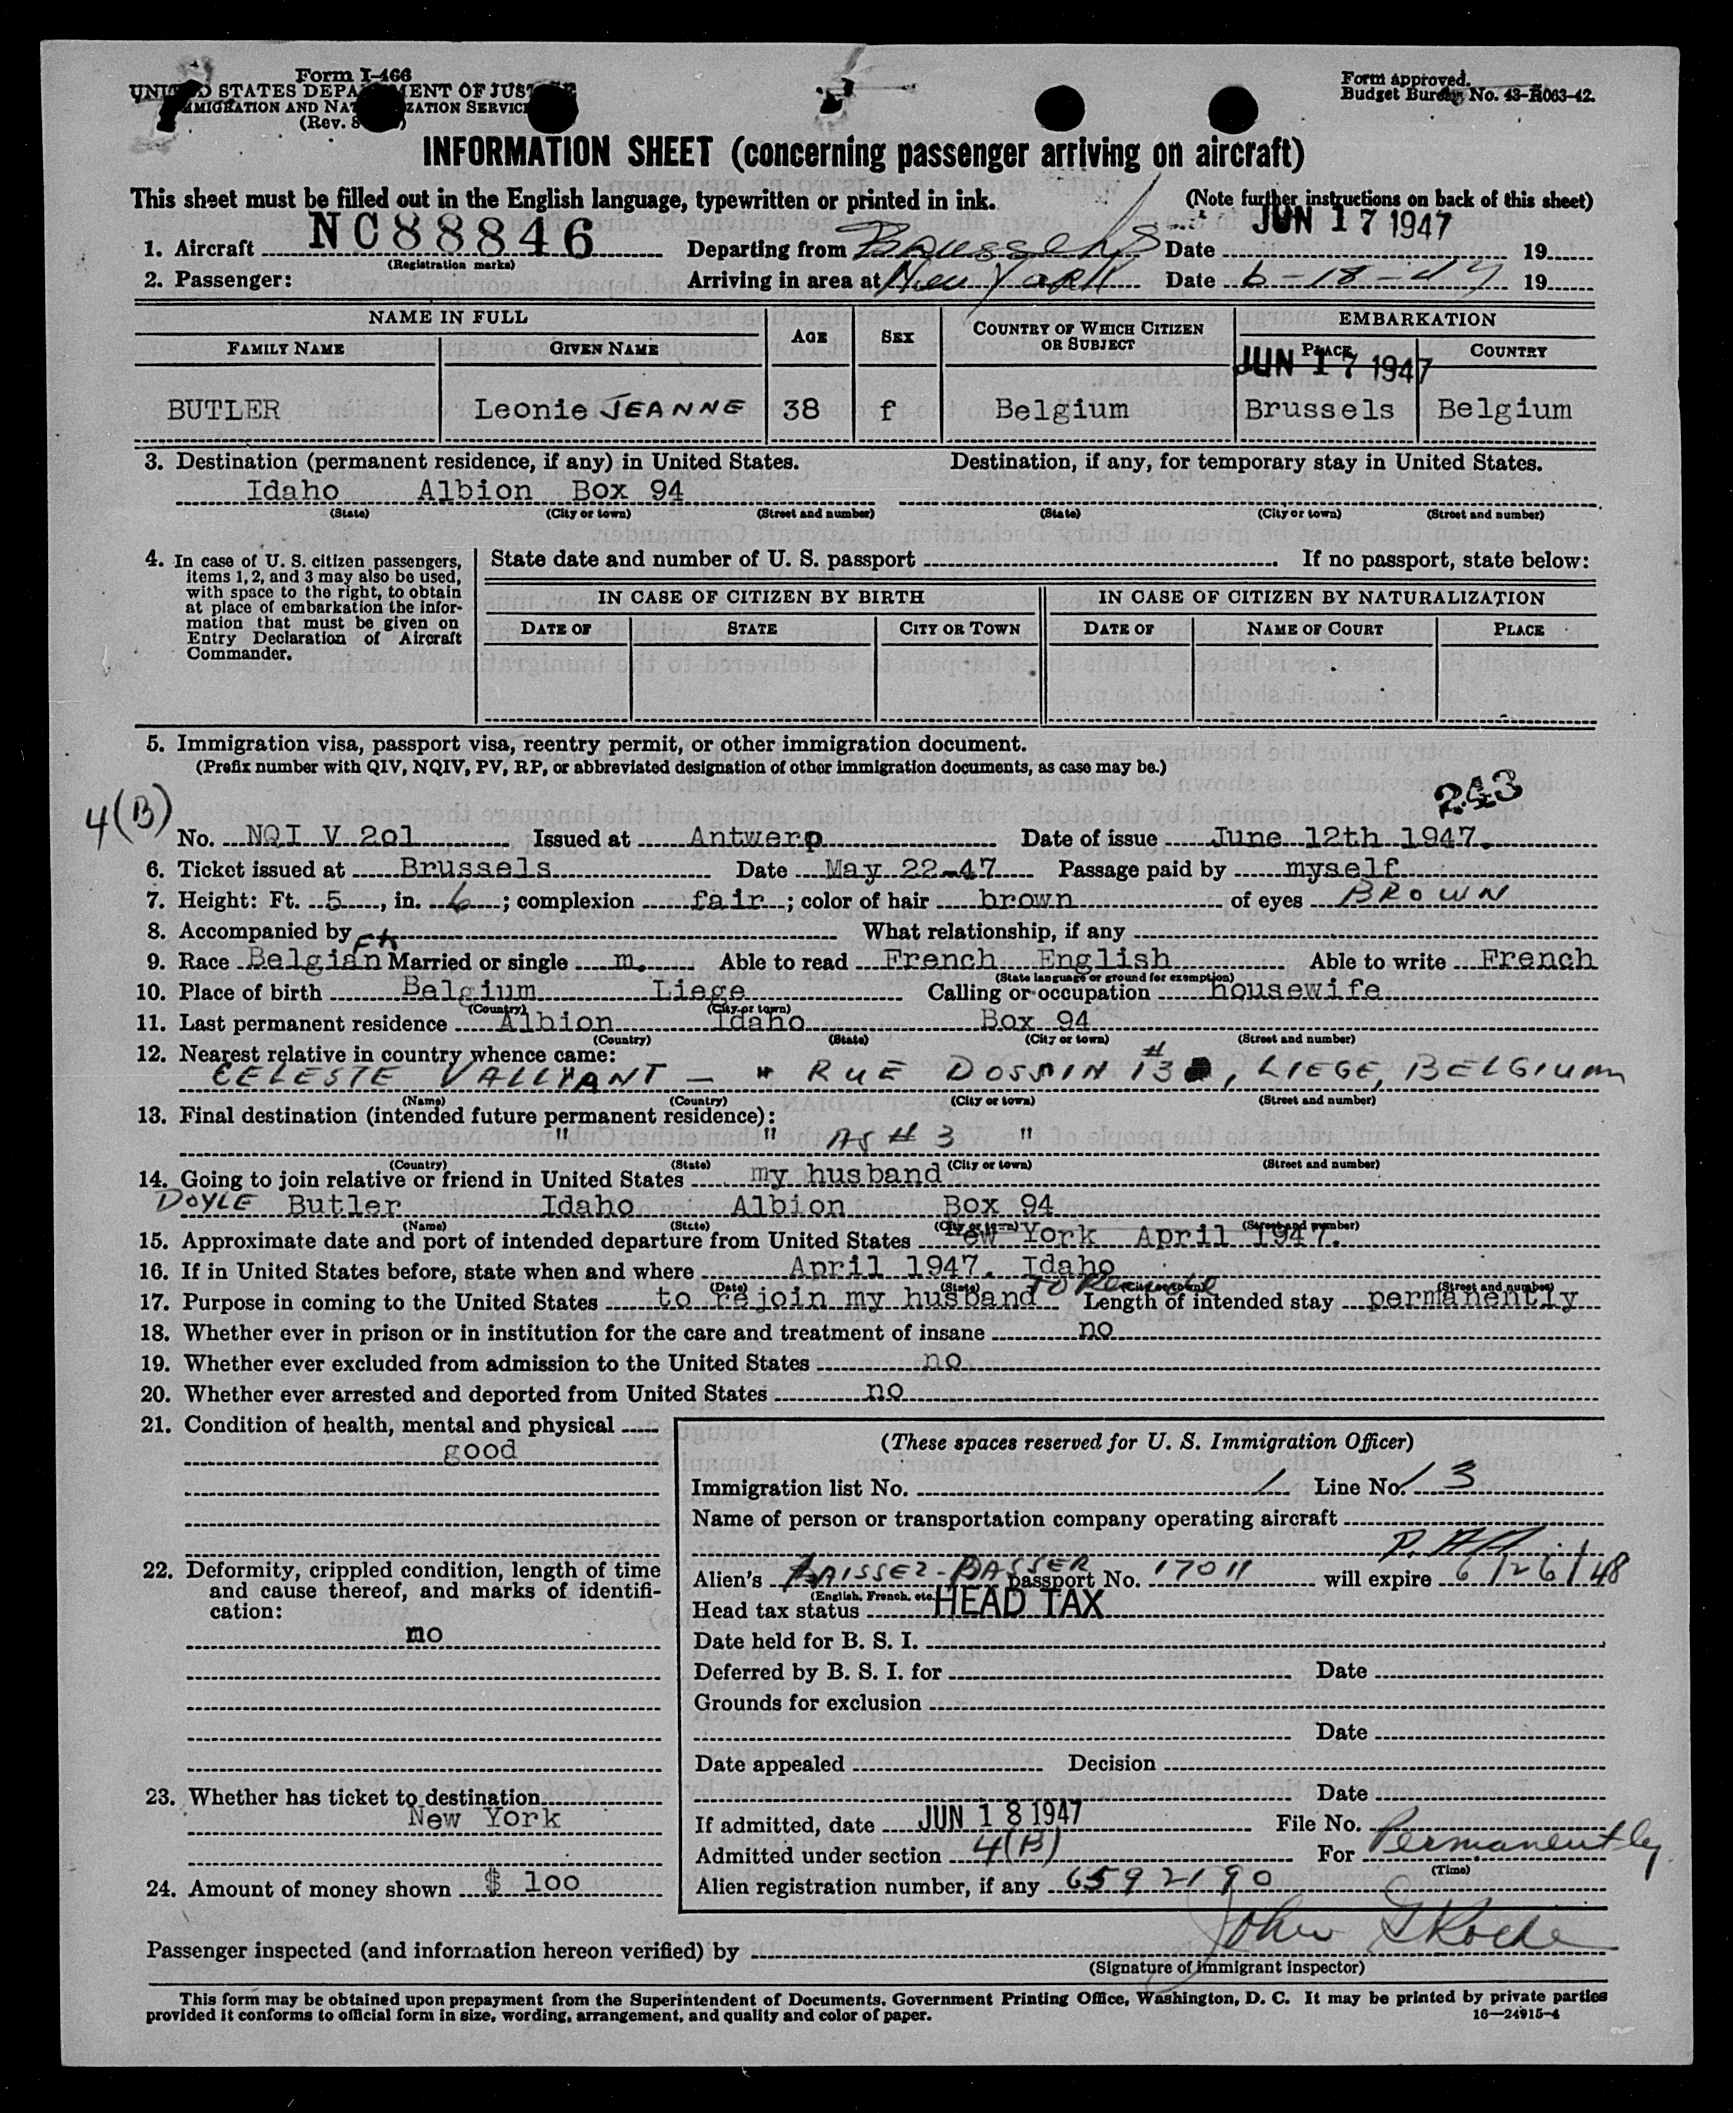 Form I-466
UNITED STATES DEPARTMENT OF JUSTICE
IMMIGRATION AND NATURALIZATION SERVICE
(Rev. 8
Form approved.
Budget Bureau No. 43-R063-42.
INFORMATION SHEET (concerning passenger arriving on aircraft)
This sheet must be filled out in the English language, typewritten or printed in ink. (Note further instructions on back of this sheet)
1. Aircraft NC88846 Departing from Brussels Date JUN 17 1947 19
(Registration marks)
2. Passenger: Arriving in area at New York Date 6-18-47 19
NAME IN FULL AGE SEX COUNTRY OF WHICH CITIZEN OR SUBJECT EMBARKATION
FAMILY NAME GIVEN NAME PLACE COUNTRY
JUN 17 1947
BUTLER Leonie JEANNE 38 f Belgium Brussels Belgium
3. Destination (permanent residence, if any) in United States. Destination, if any, for temporary stay in United States.
Idaho Albion Box 94
(State) (City or town) (Street and number) (State) (City or town) (Street and number)
4. In case of U. S. citizen passengers, items 1, 2, and 3 may also be used, with space to the right, to obtain at place of embarkation the information that must be given on Entry Declaration of Aircraft Commander.
State date and number of U. S. passport If no passport, state below:
IN CASE OF CITIZEN BY BIRTH IN CASE OF CITIZEN BY NATURALIZATION
DATE OF STATE CITY OR TOWN DATE OF NAME OF COURT PLACE
5. Immigration visa, passport visa, reentry permit, or other immigration document.
(Prefix number with QIV, NQIV, PV, RP, or abbreviated designation of other immigration documents, as case may be.)
243
4(B)
No. NQI V 201 Issued at Antwerp Date of issue June 12th 1947.
6. Ticket issued at Brussels Date May 22-47 Passage paid by myself
7. Height: Ft. 5, in. 6; complexion fair; color of hair brown of eyes BROWN
8. Accompanied by What relationship, if any
9. Race Belgian Married or single m. Able to read French English Able to write French
(State language or ground for exemption)
10. Place of birth Belgium Liege Calling or occupation housewife
(Country) (City or town)
11. Last permanent residence Albion Idaho Box 94
(Country) (State) (City or town) (Street and number)
12. Nearest relative in country whence came:
CELESTE - " RUE DOSSIN #13, LIEGE, BELGIUM
(Name) (Country) (City or town) (Street and number)
13. Final destination (intended future permanent residence):
" " AS # 3 "
(Country) (State) (City or town) (Street and number)
14. Going to join relative or friend in United States my husband
DOYLE Butler Idaho Albion Box 94
(Name) (State) (City or town) (Street and number)
15. Approximate date and port of intended departure from United States New York April 1947.
16. If in United States before, state when and where April 1947. Idaho
(Date) (State) (City or town) (Street and number)
17. Purpose in coming to the United States to rejoin my husband Length of intended stay permanently
18. Whether ever in prison or in institution for the care and treatment of insane no
19. Whether ever excluded from admission to the United States no
20. Whether ever arrested and deported from United States no
21. Condition of health, mental and physical
good
22. Deformity, crippled condition, length of time and cause thereof, and marks of identification:
mo
23. Whether has ticket to destination
New York
24. Amount of money shown $ 100
(These spaces reserved for U. S. Immigration Officer)
Immigration list No. 1 Line No. 13
Name of person or transportation company operating aircraft
P.A.A.
Alien's passport No. 17011 will expire 6/26/48
(English, French, etc.)
Head tax status HEAD TAX
Date held for B. S. I.
Deferred by B. S. I. for Date
Grounds for exclusion
Date
Date appealed Decision
Date
If admitted, date JUN 18 1947 File No.
Admitted under section 4(B) For Permanently
(Time)
Alien registration number, if any 6592190
Passenger inspected (and information hereon verified) by John
(Signature of immigrant inspector)
This form may be obtained upon prepayment from the Superintendent of Documents, Government Printing Office, Washington, D. C. It may be printed by private parties
provided it conforms to official form in size, wording, arrangement, and quality and color of paper. 16—24915-4